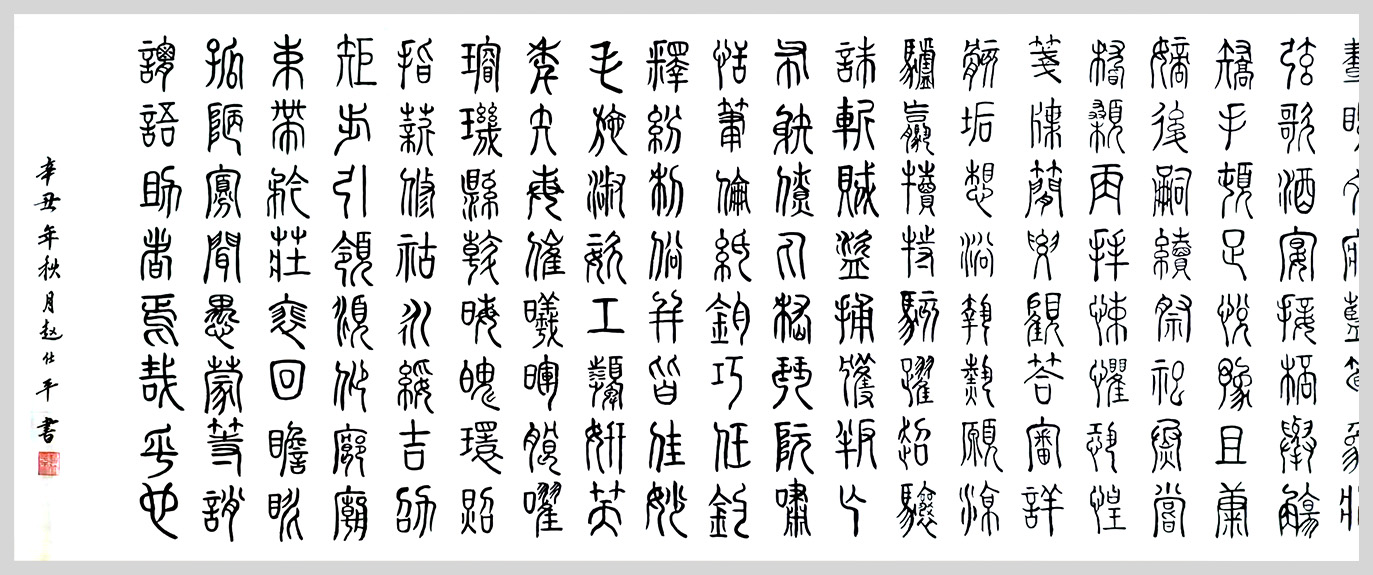 晝眠夕寐藍筍象牀
弦歌酒宴接桮舉觴
矯手頓足悅豫且康
嫡後嗣續祭祀烝嘗
稽顙再拜悚懼恐惶
箋牒簡要顧答審詳
骸垢想浴執熱願涼
驢騾犢特駭躍超驤
誅斬賊盜捕獲叛亡
布射僚丸嵇琴阮嘯
恬筆倫紙鈞巧任釣
釋紛利俗並皆佳妙
毛施淑姿工顰妍笑
年矢每催曦暉朗曜
璿璣縣斡晦魄環照
指薪修祜永綏吉劭
矩步引領頫仰廊廟
束帶矜莊裵回瞻眺
孤陋寡聞愚蒙等誚
謂語助者焉哉乎也
辛丑年秋月赵仕平書